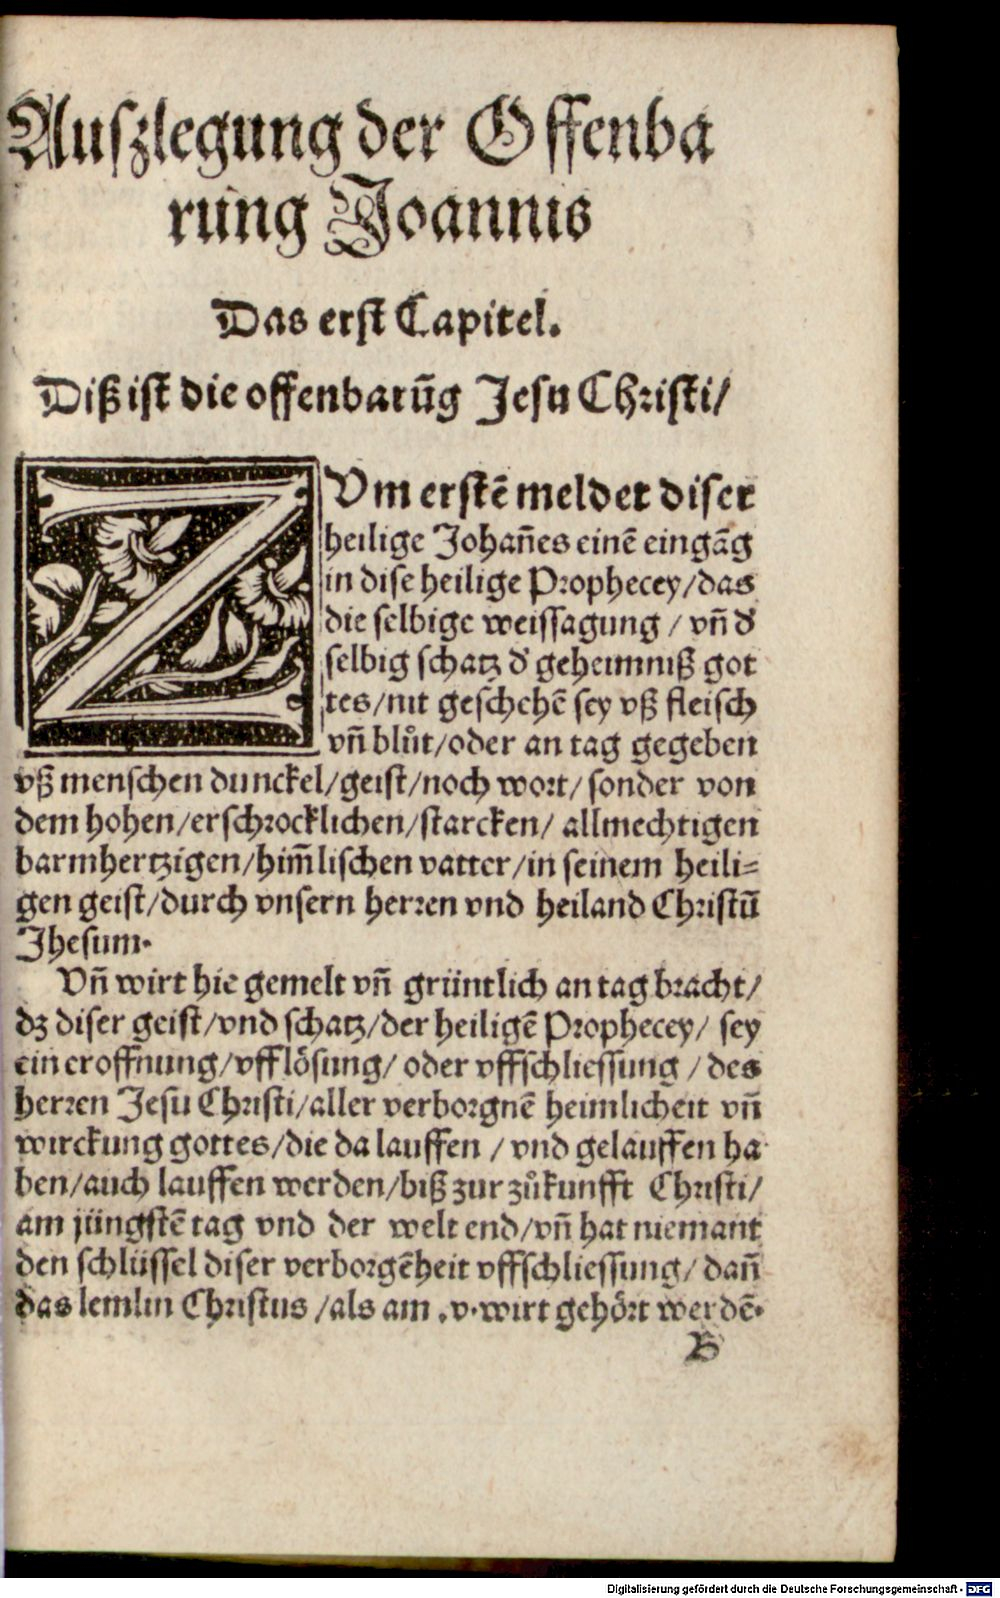 Auszlegung der Offenba
rung Joannis
Das erst Capitel.
Diß ist die offenbarūg Jesu Christi/
ZVm erstē meldet diser
heilige Johañes einē eingāg
in dise heilige Prophecey/das
die selbige weissagung / vñ d'
selbig schatz d' geheimniß got
tes/nit geschehē sey vß fleisch
vñ blůt/oder an tag gegeben
vß menschen dunckel/geist/noch wort/ sonder von
dem hohen/erschrocklichen/starcken/ allmechtigen
barmhertzigen/him̃lischen vatter/in seinem heili=
gen geist/durch vnsern herren vnd heiland Christū
Jhesum.
Vñ wirt hie gemelt vñ grüntlich an tag bracht/
dz diser geist/vnd schatz/der heiligē Prophecey/ sey
ein eroffnung/vfflösung/ oder vffschliessung / des
herren Jesu Christi/aller verborgnē heimlicheit vñ
wirckung gottes/die da lauffen / vnd gelauffen ha
ben/auch lauffen werden/biß zur zůkunfft Christi/
am jüngstē tag vnd der welt end/vñ hat niemant
den schlüssel diser verborgēheit vffschliessung/ dañ
das lemlin Christus /als am .v. wirt gehört werdē.
B
Digitalisierung gefördert durch die Deutsche Forschungsgemeinschaft - DFG